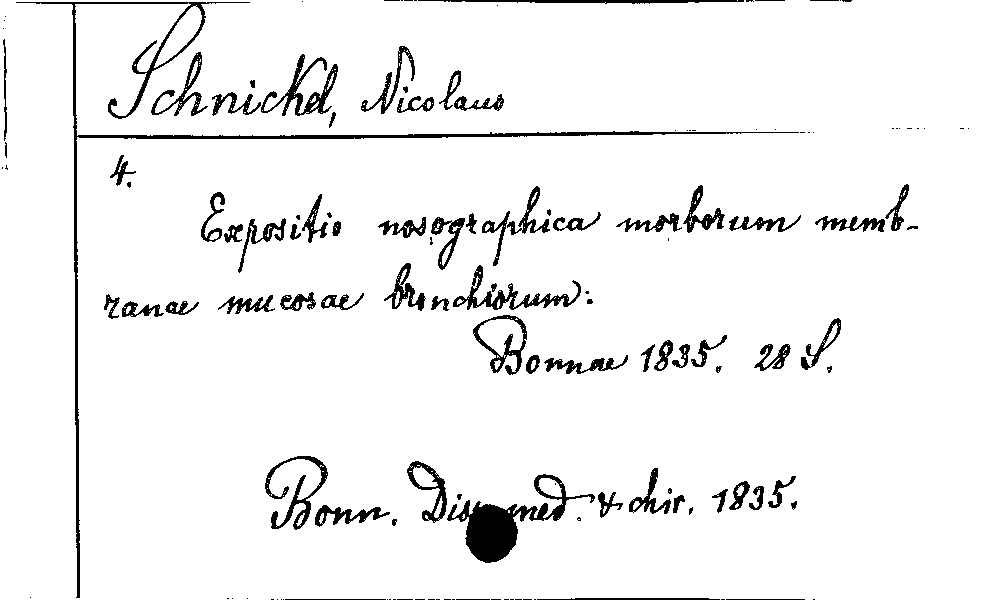 Schnickel, Nicolaus
4.
Expositio nosographica morborum memb-
ranae mucosae bronchiorum:
Bonnae 1835. 28 S.
Bonn. med. & chir. 1835.